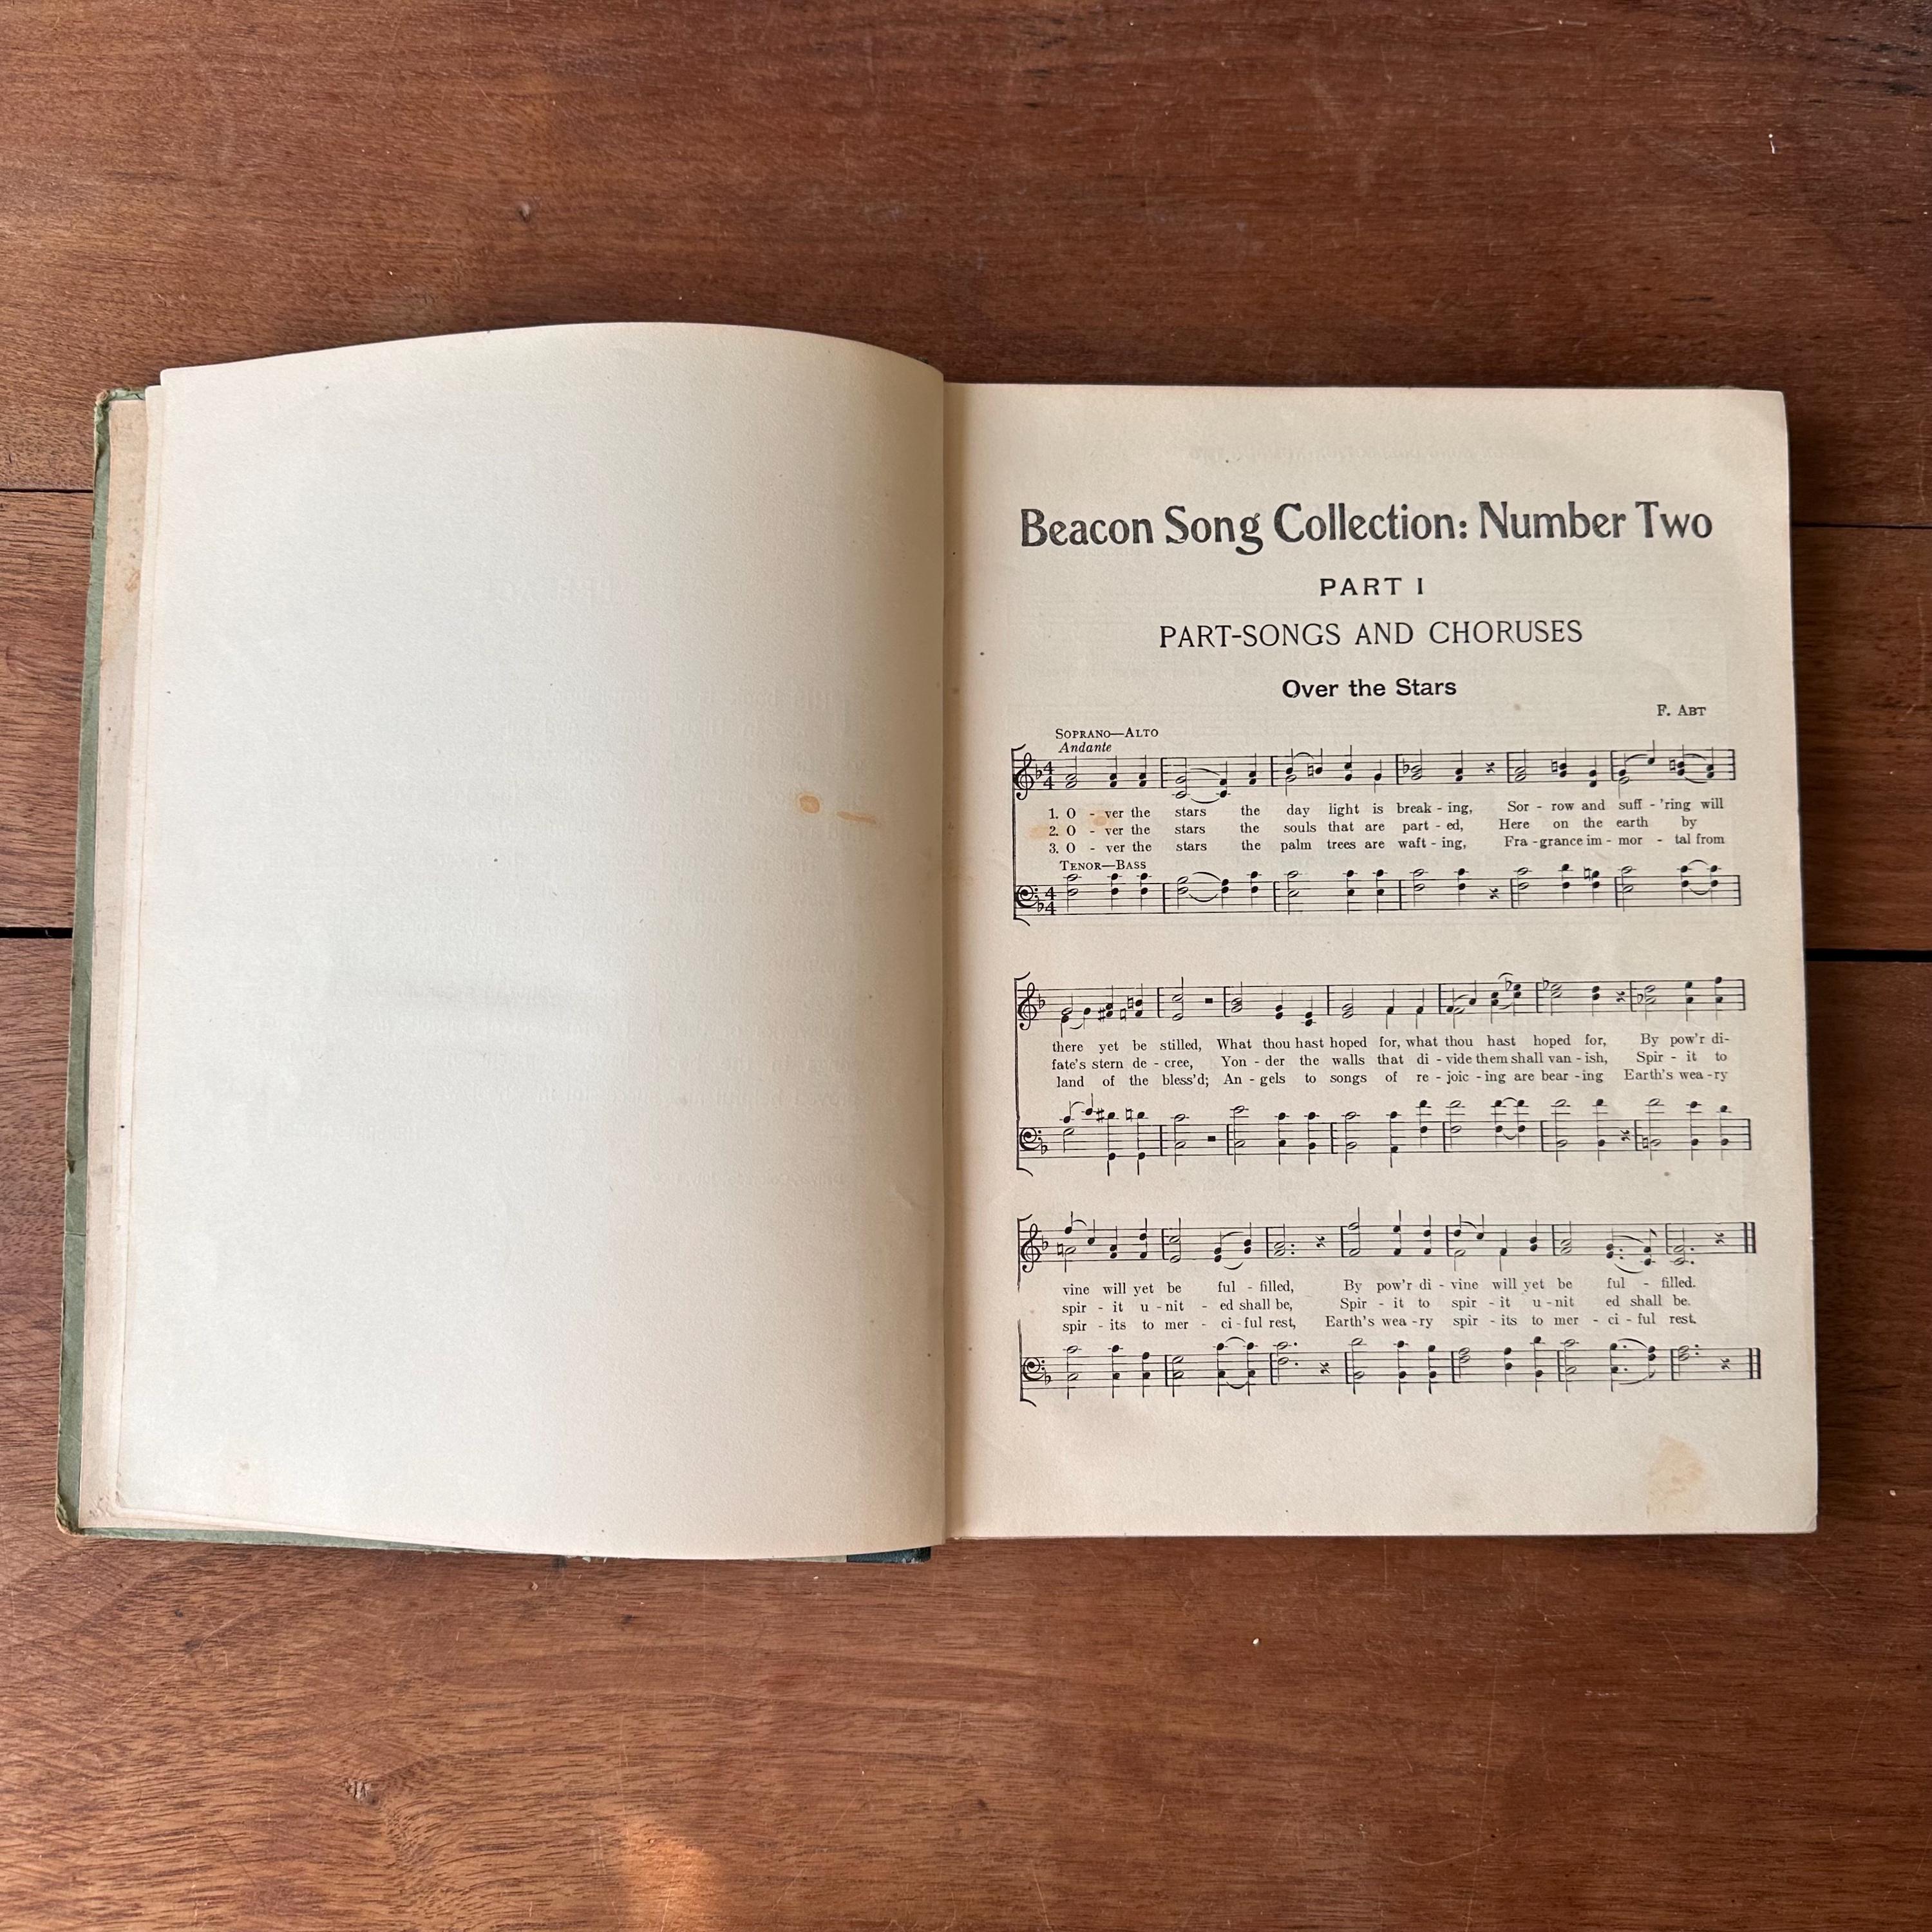 Beacon Song Collection: Number Two
PART I
PART-SONGS AND CHORUSES
Over the Stars
F. ABT
SOPRANO—ALTO
Andante
1. O - ver the stars the day light is break - ing, Sor - row and suff - 'ring will
2. O - ver the stars the souls that are part - ed, Here on the earth by
3. O - ver the stars the palm trees are waft - ing, Fra - grance im - mor - tal from
TENOR—BASS
there yet be stilled, What thou hast hoped for, what thou hast hoped for, By pow'r di-
fate's stern de - cree, Yon - der the walls that di - vide them shall van - ish, Spir - it to
land of the bless'd; An - gels to songs of re - joic - ing are bear - ing Earth's wea - ry
vine will yet be ful - filled, By pow'r di - vine will yet be ful - filled.
spir - it u - nit - ed shall be, Spir - it to spir - it u - nit ed shall be.
spir - its to mer - ci - ful rest, Earth's wea - ry spir - its to mer - ci - ful rest.